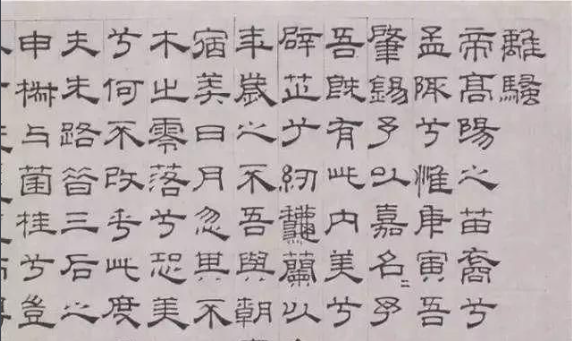 離騷
帝高陽之苗裔兮
孟陬兮惟庚寅吾
肇錫予以嘉名〻予
吾既有此内美兮
辟芷兮紉龝蘭以
年歲之不吾與朝
宿莽日月忽其不
木之零落兮恐美
兮何不改乎此度
夫先路昔三后之
申椒与菌桂兮豈